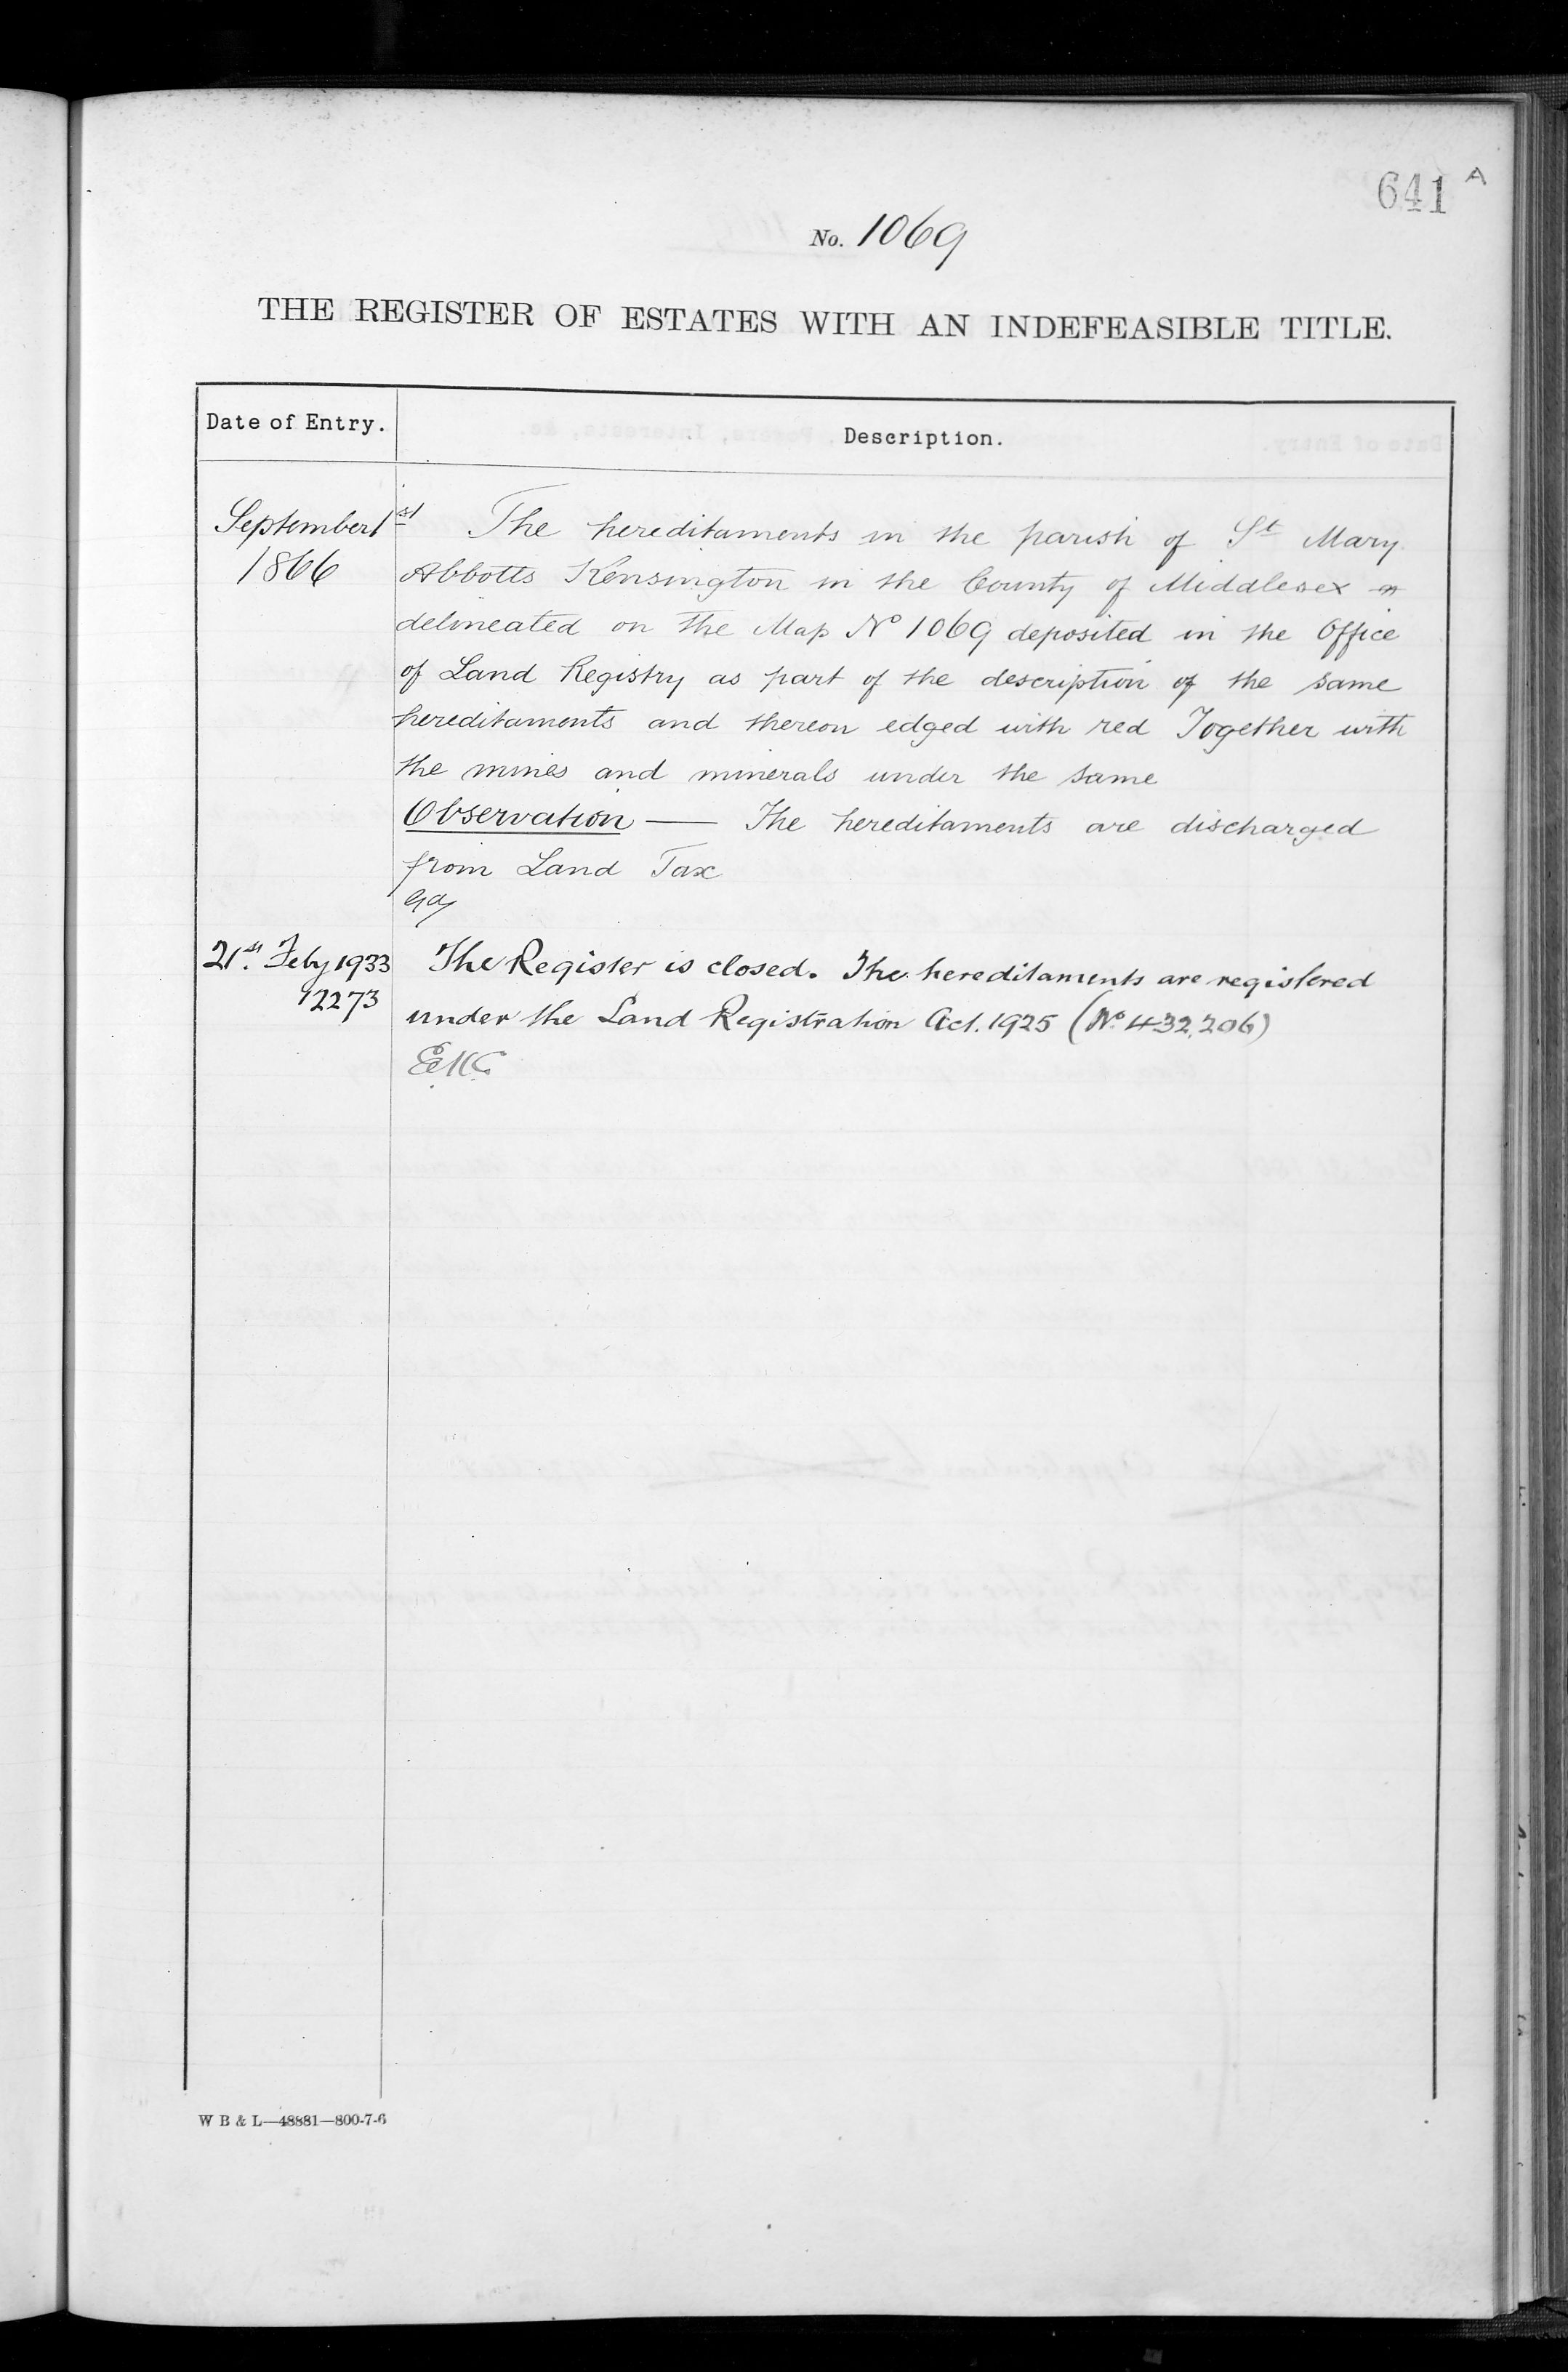 641 A
No. 1069
THE REGISTER OF ESTATES WITH AN INDEFEASIBLE TITLE.
Date of Entry. Description.
September 1st The hereditaments in the parish of St Mary
1866 Abbotts Kensington in the County of Middlesex
delineated on the Map No 1069 deposited in the Office
of Land Registry as part of the description of the same
hereditaments and thereon edged with red Together with
the mines and minerals under the same
Observation — The hereditaments are discharged
from Land Tax
21st. Feby 1933 The Register is closed. The hereditaments are registered
12273 under the Land Registration Act. 1925 (No. 432,206)
W B & L—48881—800-7-6